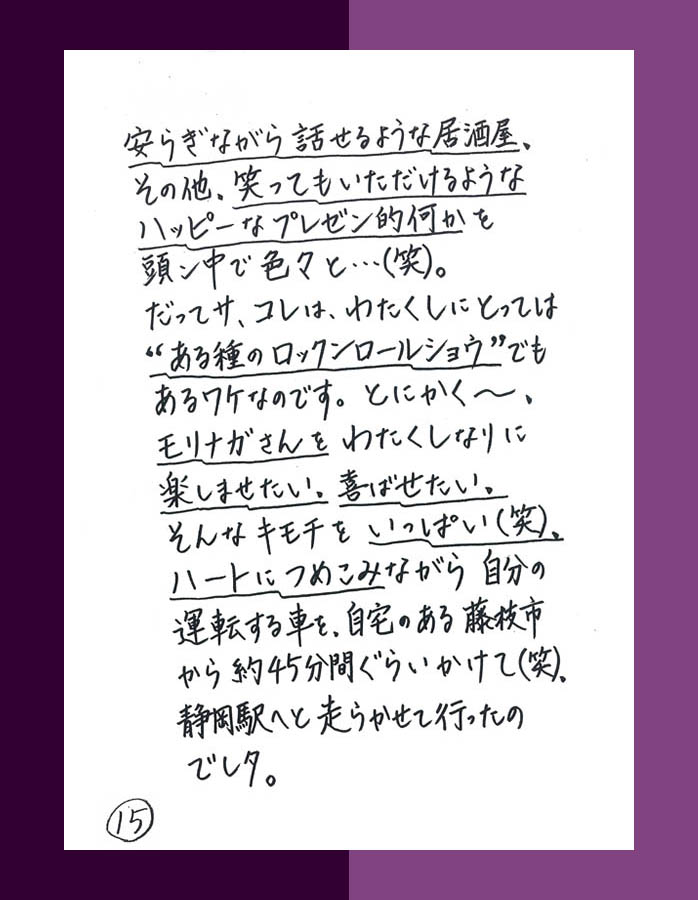 安らぎながら話せるような居酒屋、
その他、笑ってもいただけるような
ハッピーなプレゼン的何かを
頭ン中で色々と…(笑)。
だってサ、コレは、わたくしにとっては
“ある種のロックンロールショウ”でも
あるワケなのです。とにかく〜、
モリナガさんをわたくしなりに
楽しませたい。喜ばせたい。
そんなキモチをいっぱい(笑)、
ハートにつめこみながら自分の
運転する車を、自宅のある藤枝市
から約45分間ぐらいかけて(笑)、
静岡駅へと走らかせて行ったの
でしタ。
15